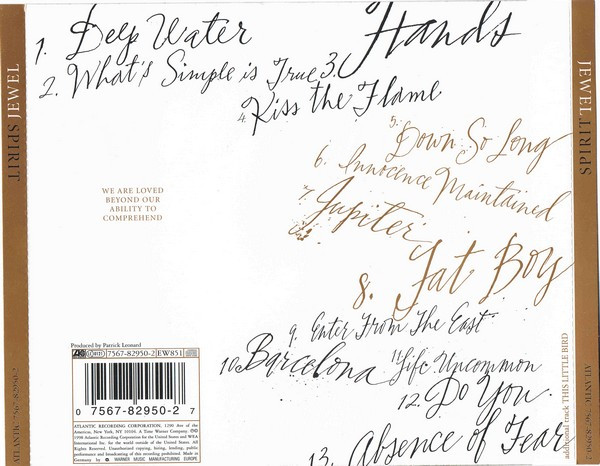 JEWEL SPIRIT
ATLANTIC 7567-82950-2
1. Deep Water
2. What's Simple is True
3. Hands
4. Kiss the Flame
5. Down So Long
6. Innocence Maintained
7. Jupiter
8. Fat Boy
9. Enter From The East
10. Barcelona
11. Life Uncommon
12. Do You
13. Absence of Fear
WE ARE LOVED
BEYOND OUR
ABILITY TO
COMPREHEND
Produced by Patrick Leonard
7567-82950-2 EW851
0 7567-82950-2 7
ATLANTIC RECORDING CORPORATION, 1290 Ave of the
Americas, New York, NY 10104. A Time Warner Company.
1998 Atlantic Recording Corporation for the United States and WEA
International Inc. for the world outside of the United States. All
Rights Reserved. Unauthorized copying, hiring, lending, public
performance and broadcasting of this recording prohibited. Made in
Germany by WARNER MUSIC MANUFACTURING EUROPE
JEWEL SPIRIT
additional track THIS LITTLE BIRD
ATLANTIC 7567-82950-2